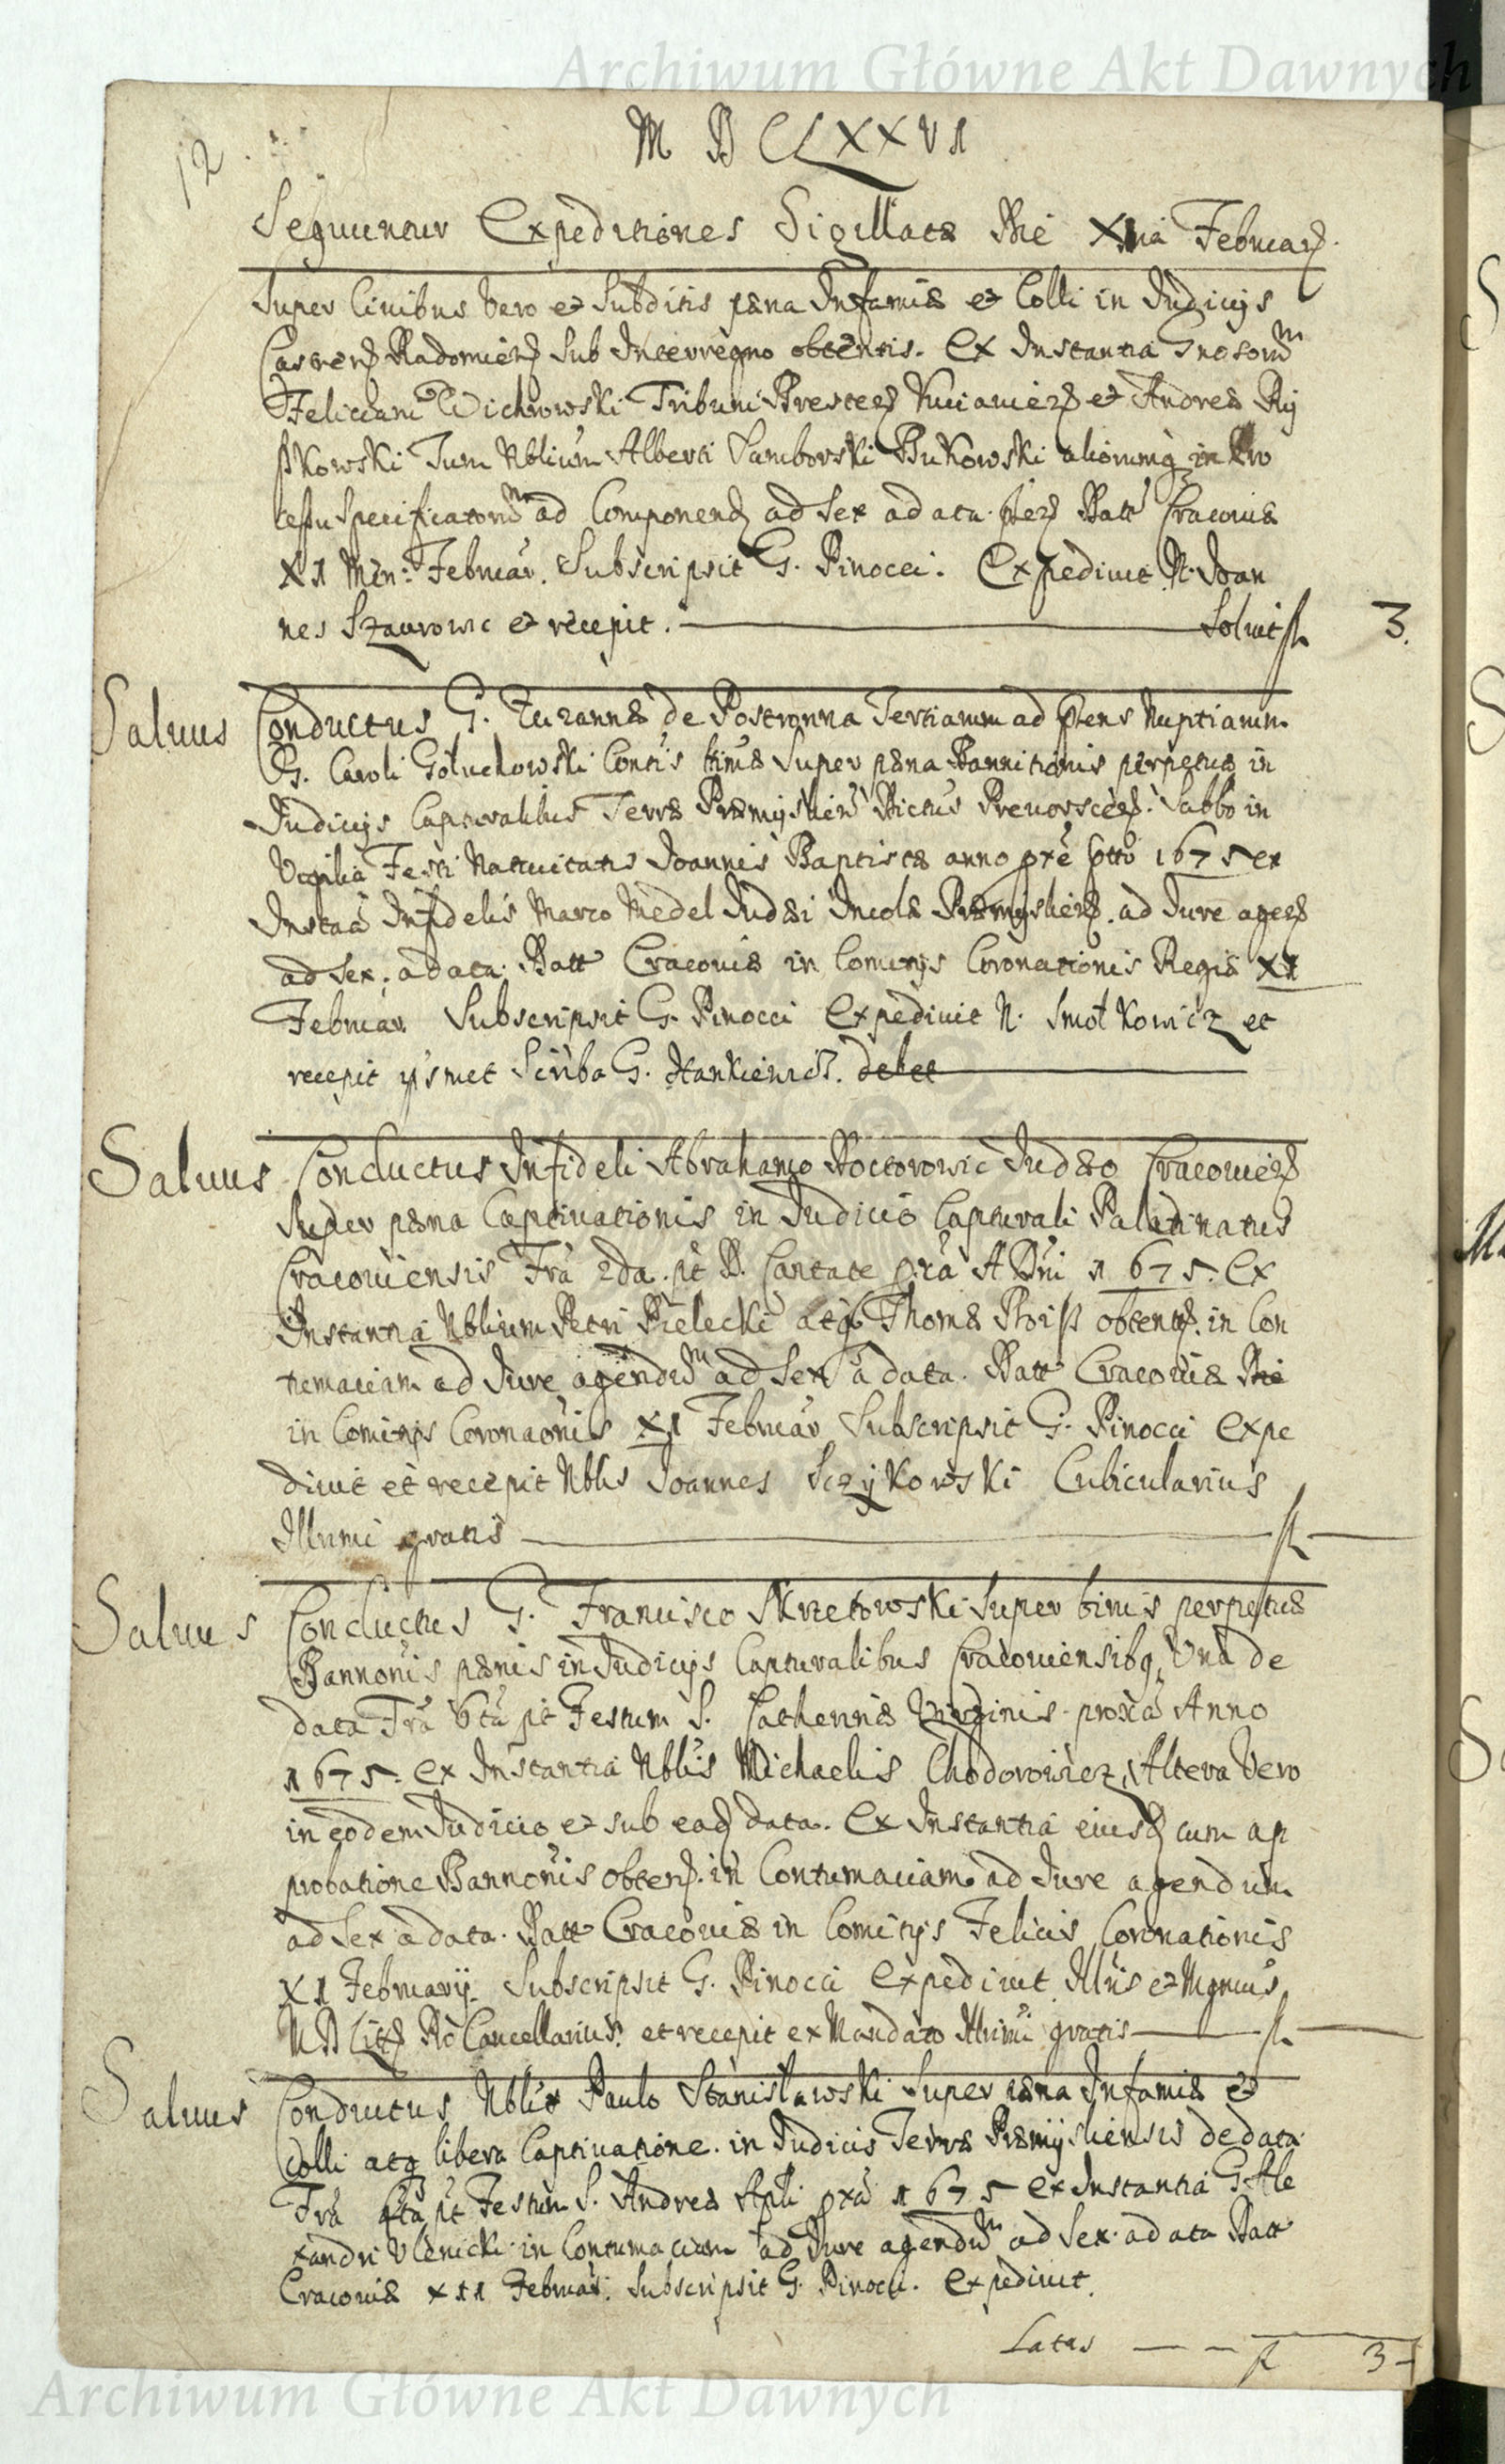 Archiwum Główne Akt Dawnych
12
M D C L X X V I
Sequuntur Expeditiones Sigillatæ Die Februar.
Super Civibus vero et Subditis pæna Infamiæ et Colli in Judicijs
Castren. Radomien. Sub Interregno obtentis. Ex Instantia Gnosorum
Feliciani Wichrowski Tribuni Bresten. Cuiavien. et Andreæ Ry
ßkowski Tum Nblium Alberti Samborski Bukowski aliorumq in Pro
cessu Specificatorum ad Componend. ad Sex a data Datt Cracoviæ
XI Men: Februar. Subscripsit G. Pinocci. Expedivit N. Joan
nes Szaurowic et recepit. — Solvit fl 3.
Salvus Conductus G. Zuzannæ de Postronna Tertiarum ad Nuptiarum
G. Caroli Gołuchowski Super pæna Bannitionis perpetuæ in
Judicijs Capturalibus Terræ Præmyslien Sabbo in
Vigilia Festi Nativitatis Joannis Baptistæ anno 1675 ex
Instaã Infidelis Marco Medel Judæi Incolæ Præmyslien. ad Jure agen.
ad Sex. a data. Datt Cracoviæ in Comitijs Coronationis Regiæ XI
Februar. Subscripsit G. Pinocci Expedivit N. Smotkowicz et
recepit ipsmet Scriba G. Hankiewicz. debet
Salvus Conductus Infideli Abrahamo Doctorowic Judæo Cracovien.
Super pæna Captivationis in Judicio Capturali Palatinatus
Cracoviensis Frã 2da. pt D. Cantate A Dni 1675. Ex
Instantia Nblium Petri Pielecki atq Thomæ obtent. in Con
tumaciam ad Jure agendum ad Sex a data. Datt Cracoviæ Die
in Comitijs Coronaonis XI Februar Subscripsit G. Pinocci Expe
divit et recepit Nblis Joannes Sczykowski Cubicularius
Illumi gratis — fl —
Salvus Conductus G. Francisco Skrzetowski Super binis perpetuæ
Bannonis pænis in Judicijs Capturalibus Cracoviensibq, Una de
data Frã 6tã pt Festum S. Catherinæ Virginis proxã Anno
1675. ex Instantia Nblis Michaelis Chodorowicz, Altera vero
in eodem Judicio et sub ead. data. Ex Instantia eiusd. cum ap
probatione Bannonis obten. in Contumaciam ad Jure agendum
ad Sex a data. Datt Cracoviæ in Comitijs Felicis Coronationis
XI Februarij. Subscripsit G. Pinocci Expedivit Illris et Mgnus
M D Litt. Cancellarius. et recepit ex Mandato Illrimi gratis — fl —
Salvus Conductus Nbli Paulo Stanisławski Super pæna Infamiæ et
Colli atq libera Captivatione. in Judiciis Terræ Præmysliensis de data
Frã pt Festum S. Andreæ Apli 1675 ex Instantia G. Ale
xandri Ulenicki in Contumaciam ad Jure agendum ad Sex. a data Datt
Cracoviæ XII Februar. Subscripsit G. Pinocci. Expedivit.
Latus — — fl 3 —
Archiwum Główne Akt Dawnych